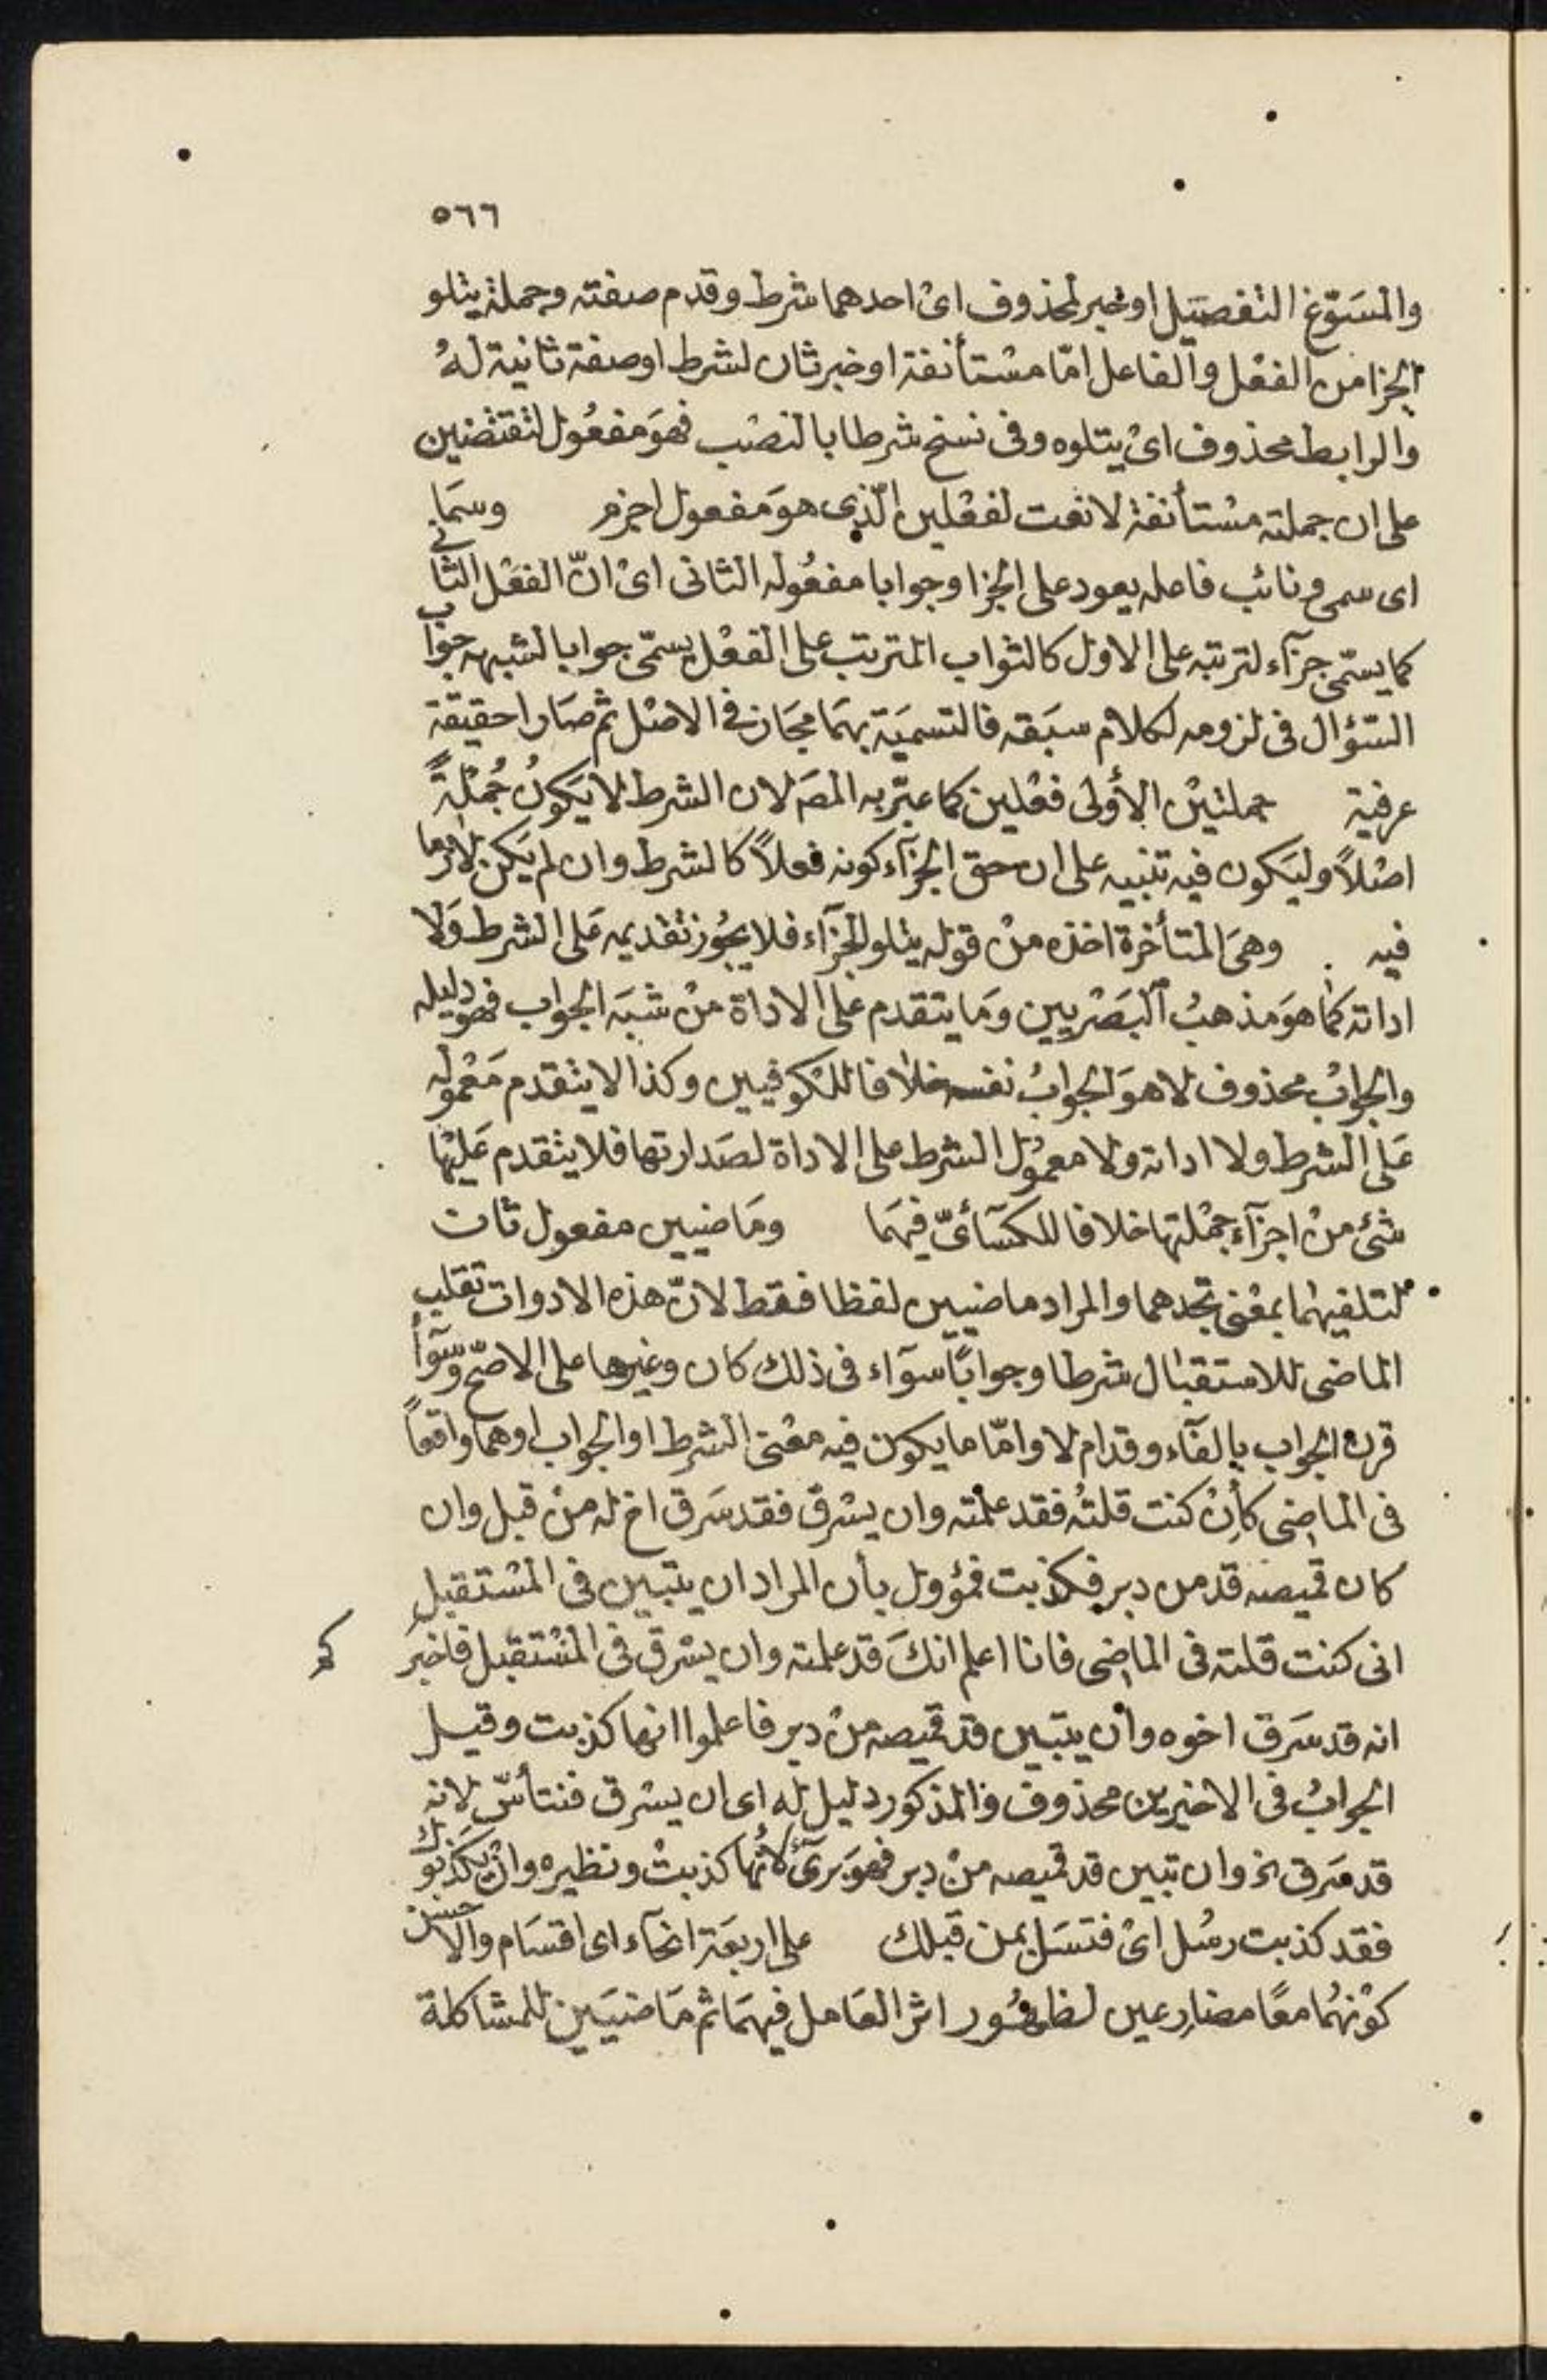 ٥٦٦
والمسَوّغ التفصيل او خبر لمحذوف اىْ احدهما شرط وقدم صفته وجملة يتلو
الجزا من الفعْل والفاعل امّا مسْتأنفة او خبر ثان لشرط او صفة ثانية لهُ
والرابط محذوف اىْ يتلوه وفى نسخ شرطا بالنصْب فهوَ مفعُول لتقتضين
على ان جملته مسْتأنفة لا نعت لفعْلين الّذى هوَ مفعول اجزم وسمَا
اى سمى ونائب فاعله يعود على الجزا وجوابا مفعُوله الثانى اىْ انّ الفعْل الثانى
كما يسمّى جزآء لترتبه على الاول كالثواب المترتب على الفعْل يسمّى جوابا لشبهه جواب
السّؤال فى لزومه لكلام سبَقه فالتسميَة بهمَا مجَاز فى الاصْل ثم صَارا حقيقة
عرفية جملتيْن الأولى فعْلين كما عبّر به المصَ لان الشرط لا يَكونُ جُمْلةً
اصْلاً وليَكون فيه تنبيه على ان حق الجزآء كونه فعلاً كالشرط وان لم يَكن لازما
فيه وهىَ المتأخرة اخذه منْ قوله يتلو الجزآء فلا يجُوز تقديمه عَلى الشرط وَلا
اداته كما هوَ مذهبُ البَصْريين ومَا يتقدم على الاداة منْ شبَه الجواب فهو دليله
والجوابُ محذوف لا هوَ الجوابُ نفسه خلافا للكوفيين وكذا لا يتقدم مَعْموله
عَلى الشرط ولا اداته ولا معموُل الشرط على الاداة لصَدارتها فلا يتقدم عَليْها
شئ منْ اجزآء جمْلتها خلافا للكسَآئىّ فيهمَا ومَاضيين مفعول ثان
لتلفيهما بمعْنى تجدهما والمراد ماضيين لفظا فقط لانّ هذه الادوات تقلب
الماضى للاستقبال شرطا وجواباً سوَآء فى ذلك كان وغيرها على الاصحّ وسوَآء
قرن الجواب بالفآء وقد ام لا وامّا ما يكون فيه معْنى الشرط او الجواب او هما واقعاً
فى الماضى كأنْ كنت قلتهُ فقد علمته وان يسْرق فقد سَرق اخ له منْ قبل وان
كان قميصه قد من دبر فكذبت فمؤول بأن المراد ان يتبين فى المسْتقبل
انى كنت قلته فى الماضى فانا اعلم انكَ قد علمته وان يسْرق فى المسْتقبل فاخبرَ
انه قد سَرق اخوه وأن يتبين قد قميصه منْ دبر فاعلموا انها كذبت وقيل
الجوابُ فى الاخيرين محذوف والمذكور دليل له اى ان يسْرق فنتأسّ لانه
قد سَرق اخ وان تبين قد قميصه منْ دبر فهوَ برئ لانّها كذبتْ ونظيره وانْ يكَذبوك
فقد كذبت رسُل اىْ فتسَل بمن قبلك على اربعَة انحآء اى اقسَام والاحسن
كوْنهُما معًا مضارعين لظهُور اثر العَامل فيهمَا ثم مَاضيَين للمشاكلة